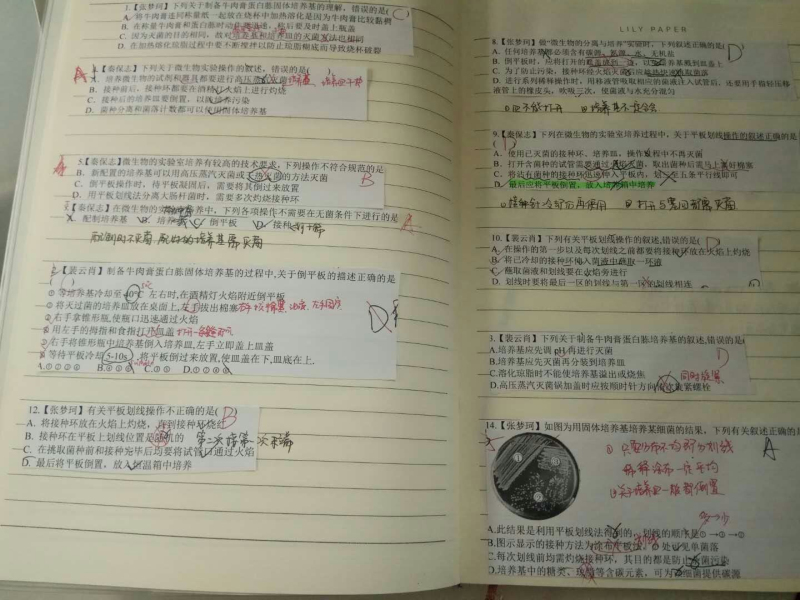 1.【张梦珂】下列关于制备牛肉膏蛋白胨固体培养基的理解,错误的是( C )
A. 将牛肉膏连同称量纸一起放在烧杯中加热熔化是因为牛肉膏比较黏稠
B. 在称量牛肉膏和蛋白胨时动作要迅速,称后要及时盖上瓶盖
C. 因为灭菌的目的相同,故对培养基和培养皿的灭菌方法也相同
D. 在加热熔化琼脂过程中要不断搅拌以防止琼脂糊底而导致烧杯破碎
【秦保志】关于微生物实验操作的叙述,错误的是(
A. 培养微生物的试剂和器具都要进行高压蒸汽灭菌
B. 接种前后,接种环都要在酒精灯火焰上进行灼烧
C. 接种后的培养皿要倒置,以防培养污染
D. 菌种分离和菌落计数都可以使用固体培养基
5.【秦保志】微生物的实验室培养有较高的技术要求,下列操作不符合规范的是
B
B. 新配置的培养基可以用高压蒸汽灭菌或干热灭菌的方法灭菌
C. 倒平板操作时,待平板凝固后,需要将其倒过来放置
D. 用平板划线法分离大肠杆菌时,需要多次灼烧接种环
【秦保志】在微生物的实验室培养中,下列各项操作不需要在无菌条件下进行的是
A. 配制培养基 B. C. 倒平板 D. 接种
【裴云肖】制备牛肉膏蛋白胨固体培养基的过程中,关于倒平板的描述正确的是
( )
①等培养基冷却至40℃左右时,在酒精灯火焰附近倒平板
②将灭过菌的培养皿放在桌面上,左手拔出棉塞
③右手拿锥形瓶,使瓶口迅速通过火焰
④用左手的拇指和食指打开皿盖
⑤右手将锥形瓶中培养基倒入培养皿,左手立即盖上皿盖
⑥等待平板冷却5-10s,将平板倒过来放置,使皿盖在下,皿底在上.
D
12.【张梦珂】有关平板划线操作不正确的是( B )
A. 将接种环放在火焰上灼烧,直到接种环烧红
B. 接种环在平板上划线位置是随机的 第二次培第一次末端
C. 在挑取菌种前和接种完毕后均要将试管口通过火焰
D. 最后将平板倒置,放入恒温箱中培养
LILY PAPER
8.【张梦珂】做“微生物的分离与培养”实验时,下列叙述正确的是( D )
A. 任何培养基都必须含有碳源、氮源、水、无机盐
B. 倒平板时,应将打开的皿盖放到一边,以免培养基溅到皿盖上
C. 为了防止污染,接种环经火焰灭菌后应趁热快速挑取菌落
D. 进行系列稀释操作时,用移液管吸取相应的菌液注入试管后,还要用手指轻压移
液管上的橡皮头,吹吸三次,使菌液与水充分混匀
9.【秦保志】下列在微生物的实验室培养过程中,关于平板划线操作的叙述正确的是
( )
A. 使用已灭菌的接种环、培养皿,操作过程中不再灭菌
B. 打开含菌种的试管需要通过火焰灭菌,取出菌种后需马上塞好棉塞
C. 将沾有菌种的接种环迅速伸入平板内,划三至五条平行线即可
D. 最后应将平板倒置,放入培养箱中培养
10.【裴云肖】下列有关平板划线操作的叙述,错误的是( )
A. 在操作的第一步以及每次划线之前都要将接种环放在火焰上灼烧
B. 将已冷却的接种环伸入菌液中蘸取一环液
C. 蘸取菌液和划线要在火焰旁进行
D. 划线时要将最后一区的划线与第一区的划线相连
D
3.【裴云肖】下列关于制备牛肉膏蛋白胨培养基的叙述,错误的是( )
A.培养基应先调pH再进行灭菌
B.培养基应先灭菌再分装到培养皿
C.溶化琼脂时不能使培养基溢出或烧焦
D.高压蒸汽灭菌锅加盖时应按顺时针方向依次旋紧螺栓
D
同时旋紧
14.【张梦珂】如图为用固体培养基培养某细菌的结果,下列有关叙述正确的是
A
A.此结果是利用平板划线法得到的,划线的顺序是①→②→③
B.图示显示的接种方法为涂布平板法,③处出现单菌落
C.每次划线前均需灼烧接种环,其目的都是防止杂菌污染
D.培养基中的糖类、琼脂等含碳元素,可为该细菌提供碳源